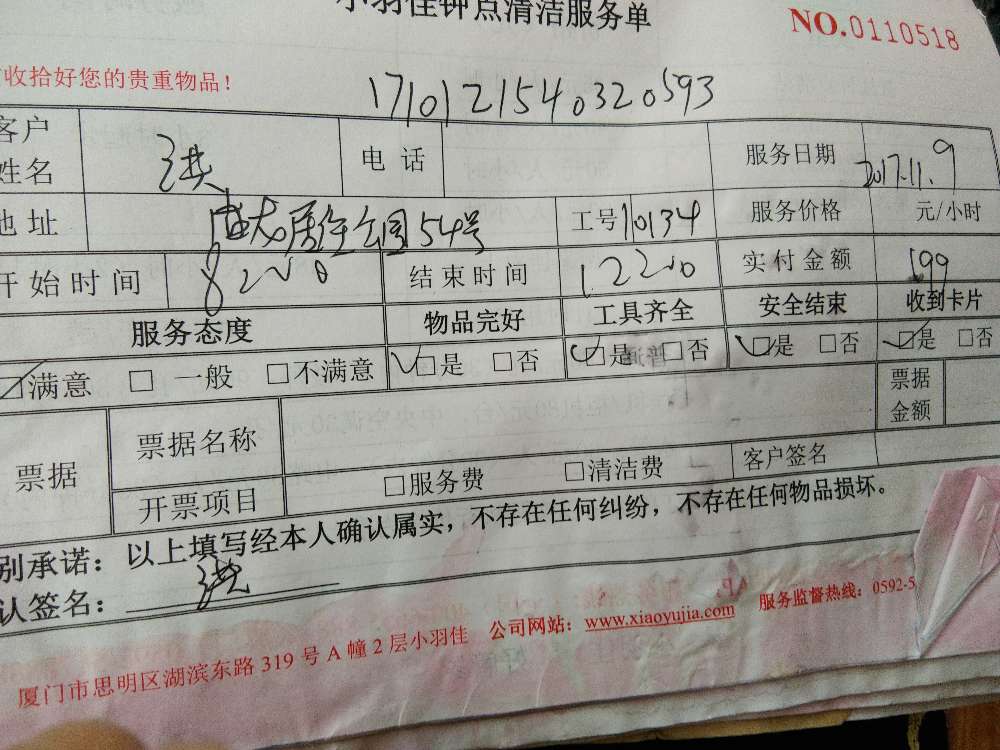 小羽佳钟点清洁服务单
NO.0110518
收拾好您的贵重物品！
171012154032 0593
客户姓名 洪 电话 服务日期 2017.11.9
地址 居住公园54号 工号 10134 服务价格 元/小时
开始时间 8:00 结束时间 12:00 实付金额 199
服务态度 物品完好 工具齐全 安全结束 收到卡片
☑满意 □一般 □不满意 ☑是 □否 ☑是 □否 ☑是 □否 ☑是 □否
票据 票据名称 票据金额
开票项目 □服务费 □清洁费 客户签名
别承诺：以上填写经本人确认属实，不存在任何纠纷，不存在任何物品损坏。
认签名：洪
厦门市思明区湖滨东路319号A幢2层小羽佳 公司网站：www.xiaoyujia.com 服务监督热线：0592-5